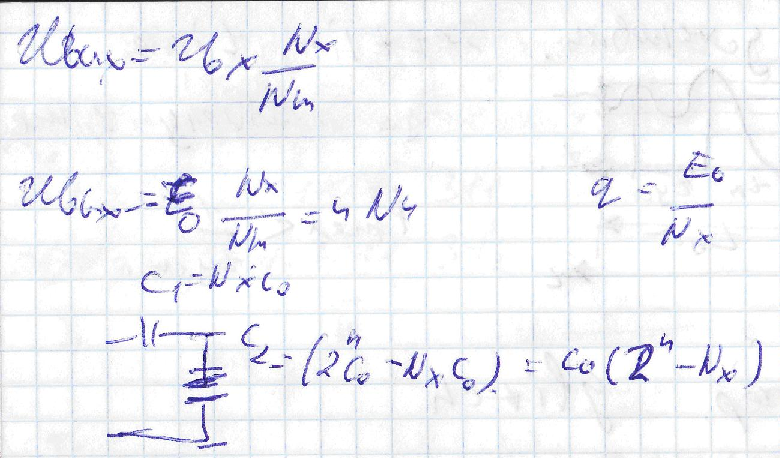 Uвых = Uвх Nx/Nm
Uвых = E0 Nx/Nm = 4 N4
q = E0/Nx
C1 = Nx C0
C2 = (2^n C0 - Nx C0) = C0 (2^n - Nx)